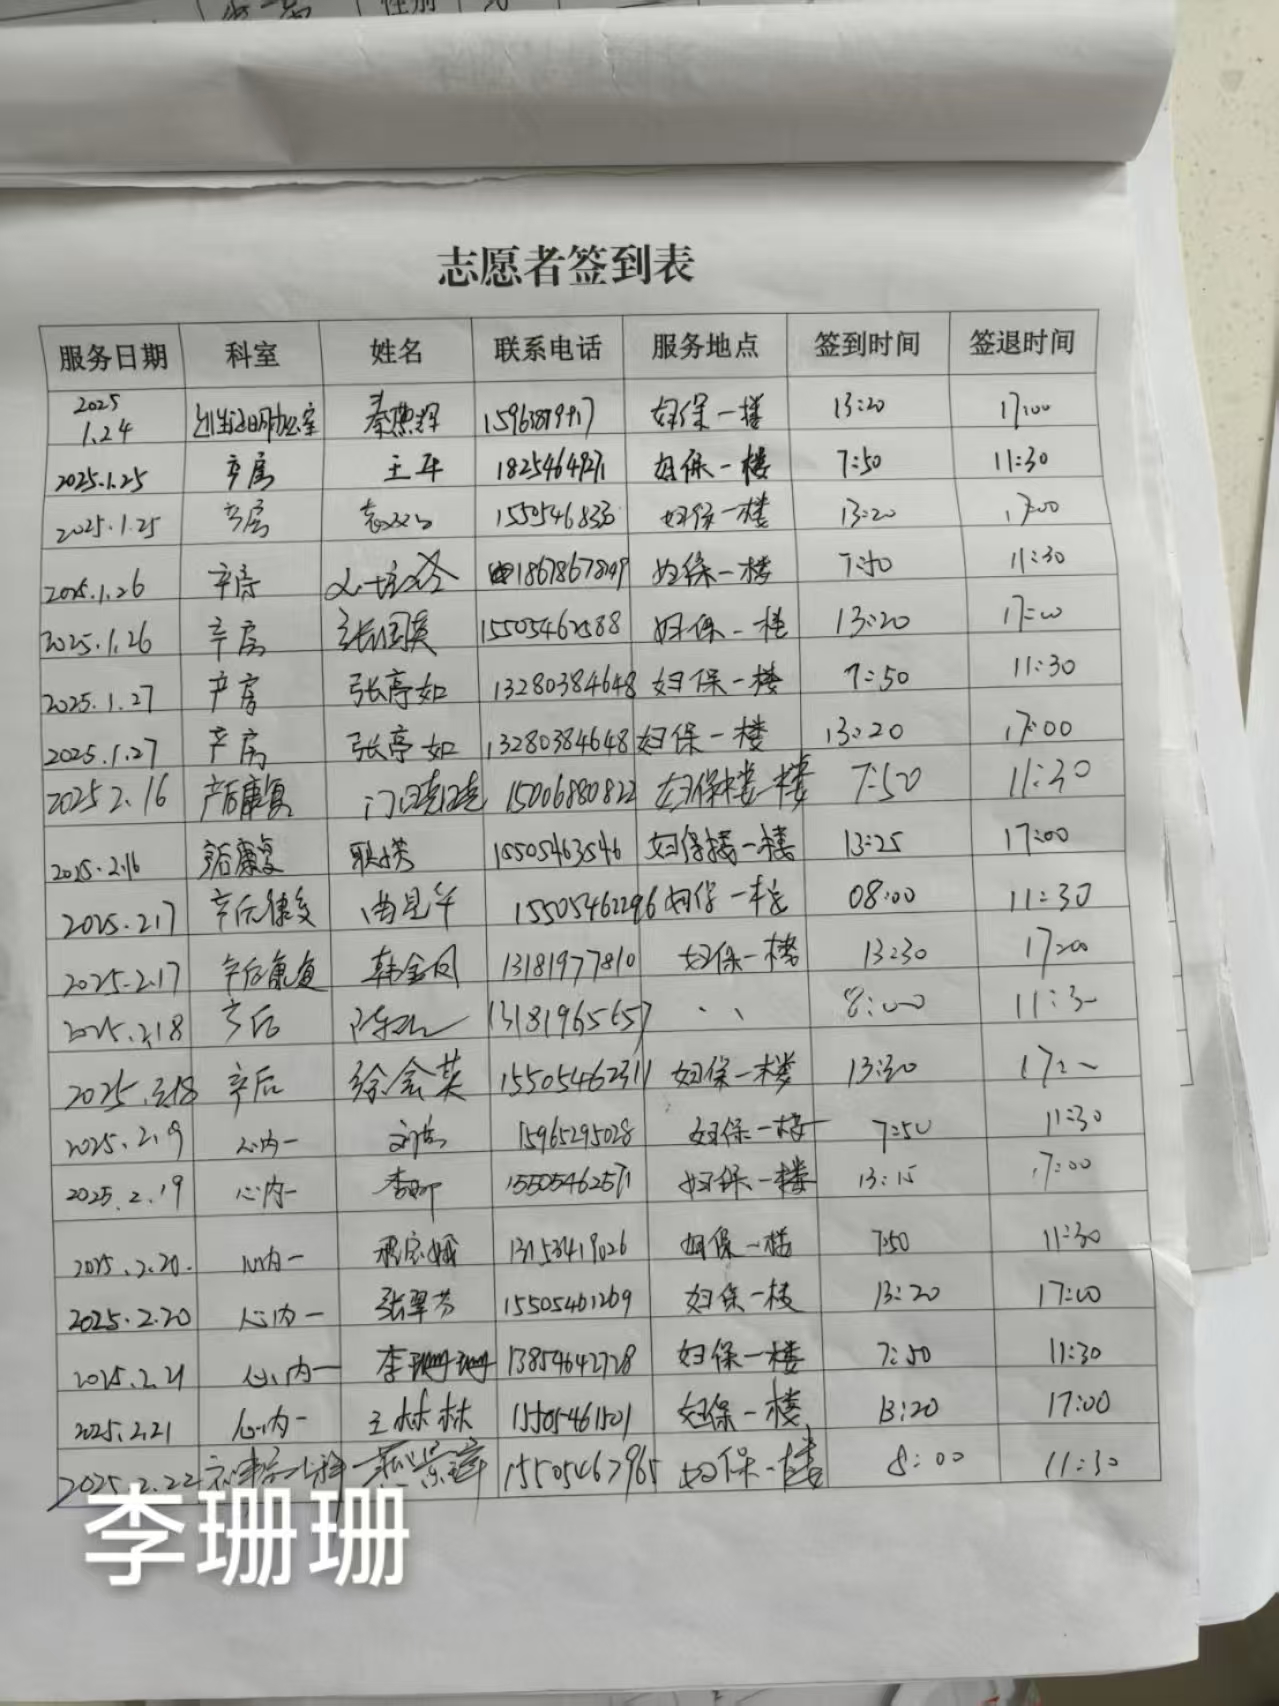 性别
志愿者签到表
服务日期 科室 姓名 联系电话 服务地点 签到时间 签退时间
2025
1.24 妇保一楼 13:20 17:00
2025.1.25 产房 王平 妇保一楼 7:50 11:30
2025.1.25 产房 妇保一楼 13:20 17:00
2025.1.26 产房 妇保一楼 7:50 11:30
2025.1.26 产房 15505462588 妇保一楼 13:20 17:00
2025.1.27 产房 张亭如 13280384648 妇保一楼 7:50 11:30
2025.1.27 产房 张亭如 13280384648 妇保一楼 13:20 17:00
2025 2.16 产后康复 门晓晓 15006880822 妇保楼一楼 7:50 11:30
2025.2.16 产后康复 15505463546 妇保楼一楼 13:25 17:00
2025.2.17 产后康复 15505462296 妇保一楼 08:00 11:30
2025.2.17 产后康复 韩金凤 13181977810 妇保一楼 13:30 17:00
2025.2.18 产后 13181965657 、、 8:00 11:30
2025.2.18 产后 徐会英 15505462311 妇保一楼 13:30
2025.2.19 心内一 15965295028 妇保一楼 7:50 11:30
2025.2.19 心内一 15505462571 妇保一楼 13:15 17:00
2025.2.20. 心内一 13153419026 妇保一楼 7:50 11:30
2025.2.20 心内一 张翠芳 15505461269 妇保一楼 13:20 17:00
2025.2.21 心内一 李珊珊 13854642728 妇保一楼 7:50 11:30
2025.2.21 心内一 王林林 15505461501 妇保一楼 13:20 17:00
2025.2.22 15505467965 妇保一楼 8:00 11:30
李珊珊